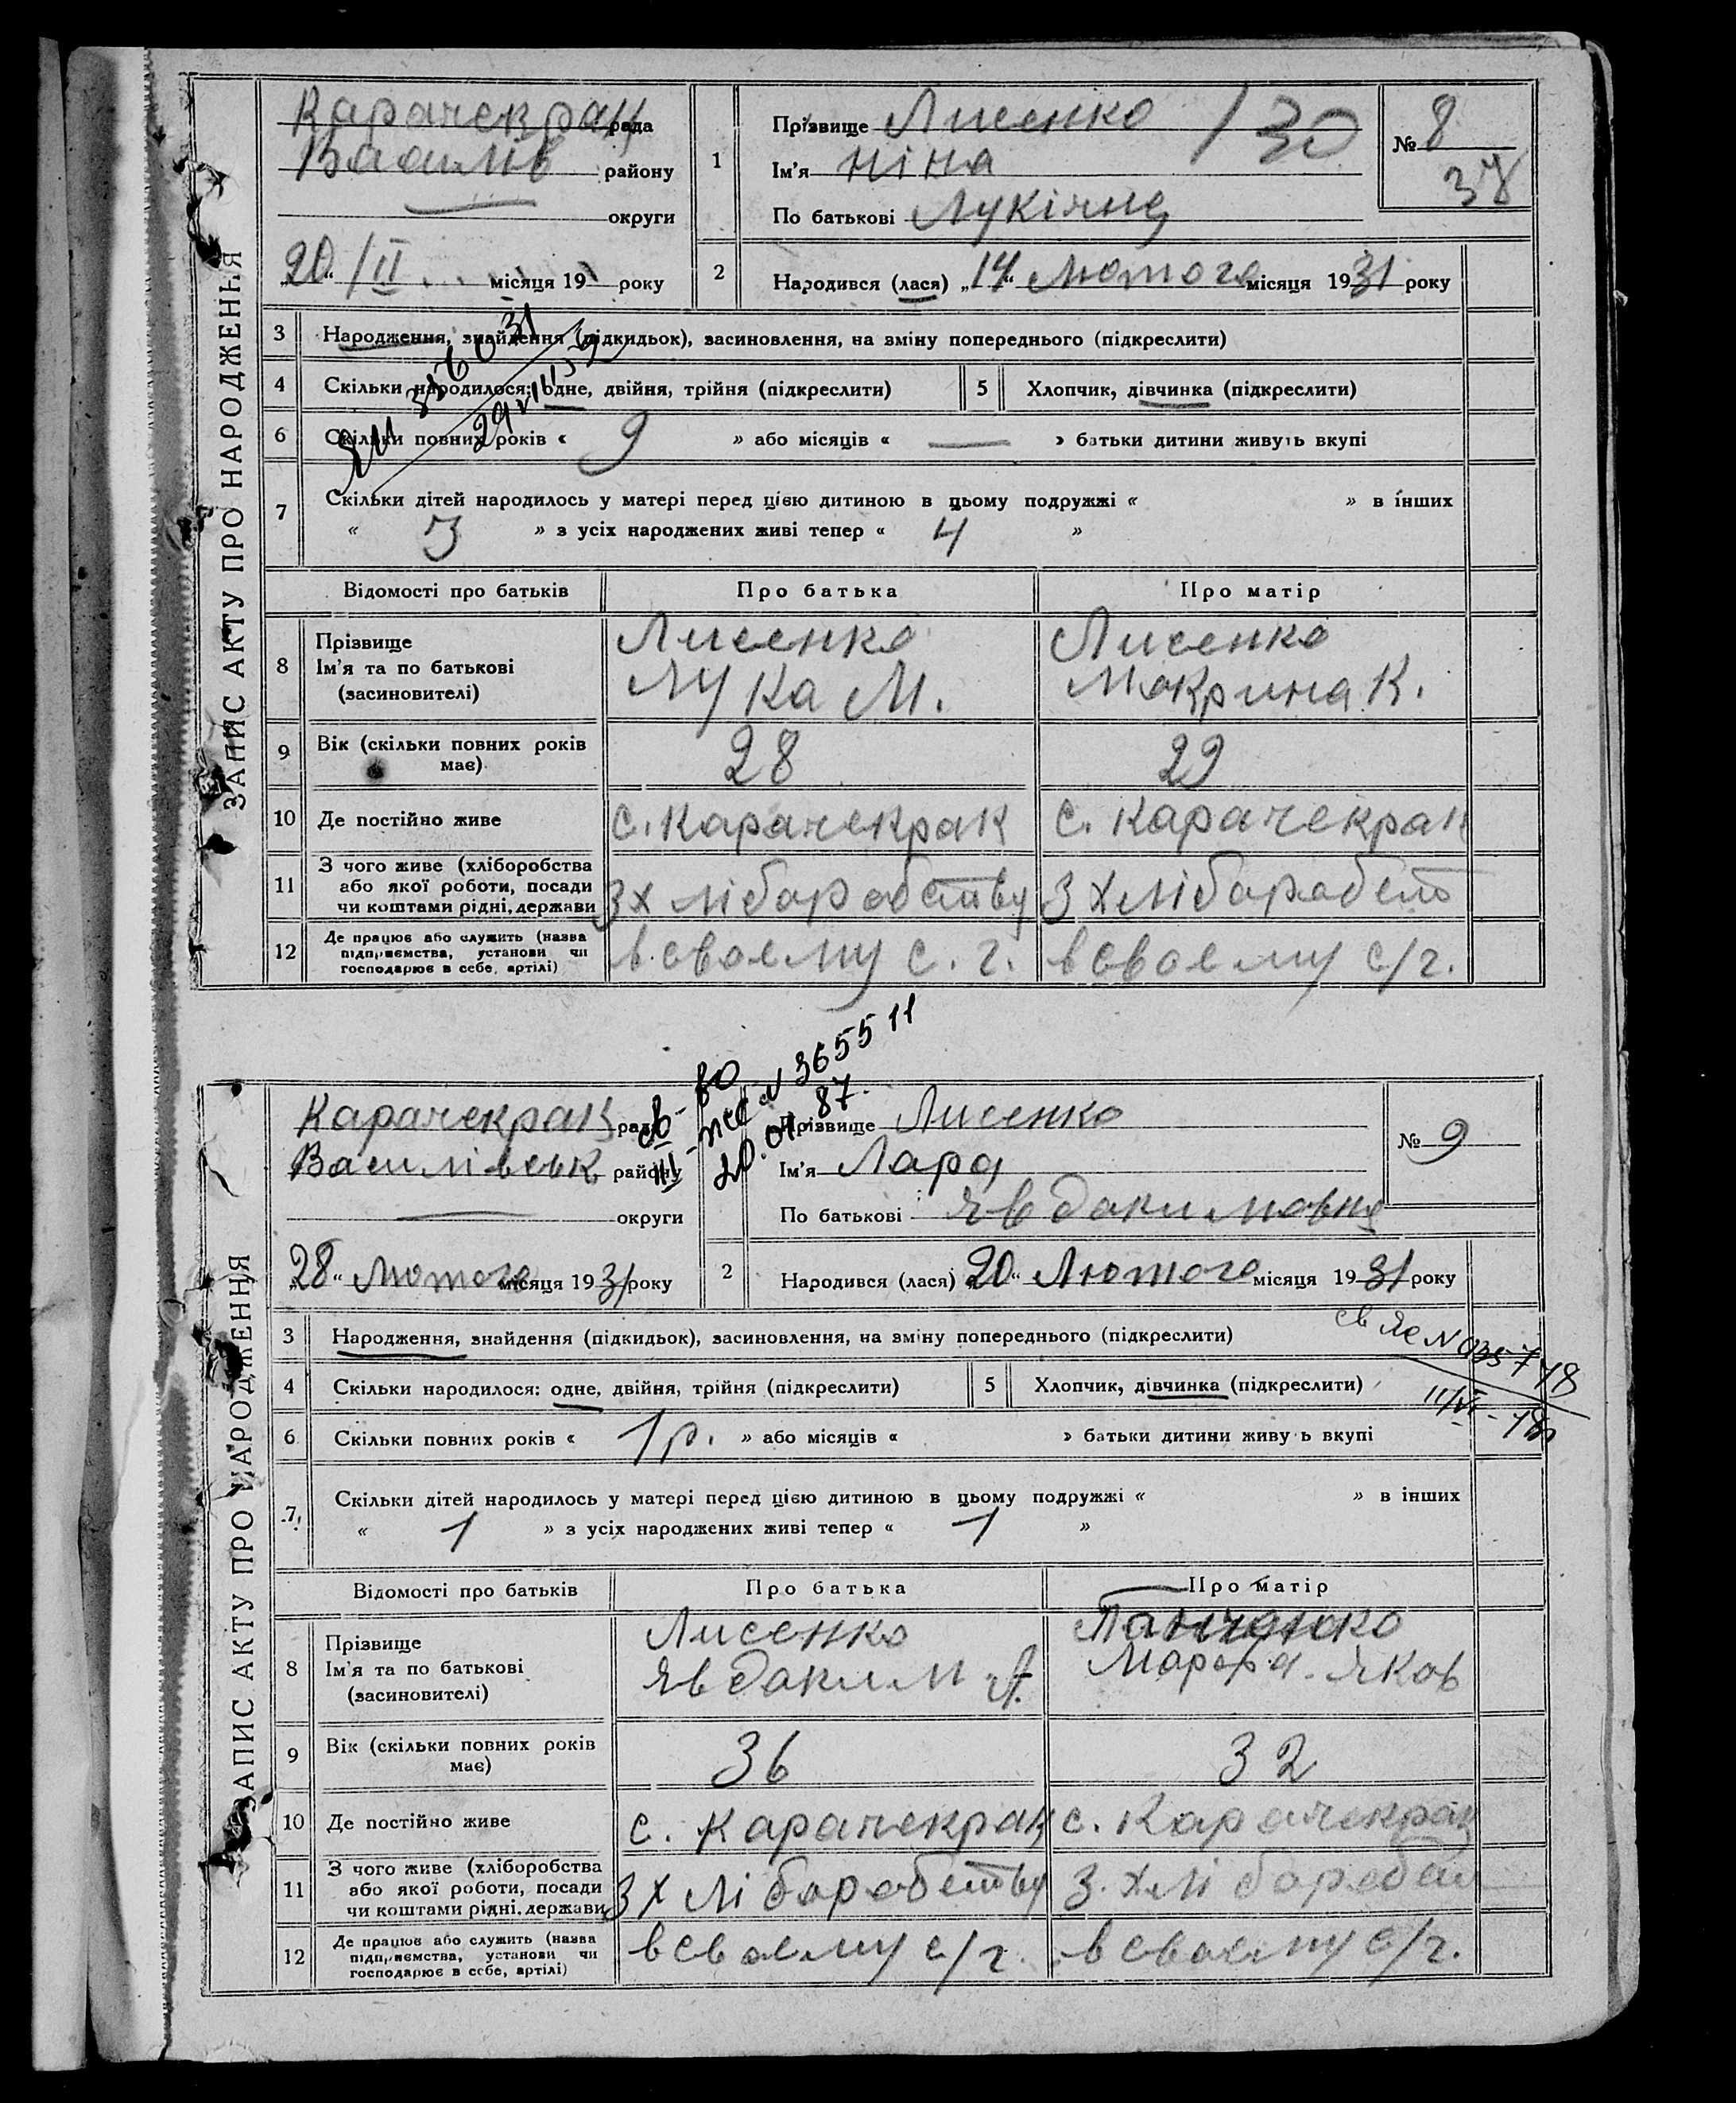 ЗАПИС АКТУ ПРО НАРОДЖЕННЯ
Карачекрак рада
Василів району
округи
20 /II місяця 19 року
1 Прізвище Лисенко 130
Ім'я Ніна
По батькові Лукічна
№ 8
38
2 Народився (лася) „14“ Лютого місяця 1931 року
3 Народження, знайдення (підкидьок), засиновлення, на зміну попереднього (підкреслити)
4 Скільки народилося: одне, двійня, трійня (підкреслити) 5 Хлопчик, дівчинка (підкреслити)
6 Скільки повних років « 9 » або місяців « — » батьки дитини живуть вкупі
7 Скільки дітей народилось у матері перед цією дитиною в цьому подружжі « » в інших
« 3 » з усіх народжених живі тепер « 4 »
Відомості про батьків Про батька Про матір
8 Прізвище Ім'я та по батькові (засиновителі)
Лисенко Лисенко
Лука М. Мокрина К.
9 Вік (скільки повних років має) 28 29
10 Де постійно живе с. Карачекрак с. Карачекрак
11 З чого живе (хліборобства або якої роботи, посади чи коштами рідні, держави
З хліборобству З хліборобст
12 Де працює або служить (назва підприємства, установи чи господарює в себе, артілі)
в своєму с. г. в своєму с/г.
ЗАПИС АКТУ ПРО НАРОДЖЕННЯ
св-во
III-ЖС N 365511
20.01.87.
Карачекрак рада
Василівськ району
округи
„28“ Лютого місяця 1931 року
Прізвище Лисенко
Ім'я Лара
По батькові Явдакимовна
№ 9
2 Народився (лася) „20“ Лютого місяця 1931 року
3 Народження, знайдення (підкидьок), засиновлення, на зміну попереднього (підкреслити)
4 Скільки народилося: одне, двійня, трійня (підкреслити) 5 Хлопчик, дівчинка (підкреслити)
6 Скільки повних років « 1 р. » або місяців « » батьки дитини живуть вкупі
7 Скільки дітей народилось у матері перед цією дитиною в цьому подружжі « » в інших
« 1 » з усіх народжених живі тепер « 1 »
Відомості про батьків Про батька Про матір
8 Прізвище Ім'я та по батькові (засиновителі)
Лисенко Панченко
Явдаким А. Марфа Яков
9 Вік (скільки повних років має) 36 32
10 Де постійно живе с. Карачекрак с. Карачекрак
11 З чого живе (хліборобства або якої роботи, посади чи коштами рідні, держави
З хліборобству З. хліборобст
12 Де працює або служить (назва підприємства, установи чи господарює в себе, артілі)
в своєму с/г. в своєму с/г.